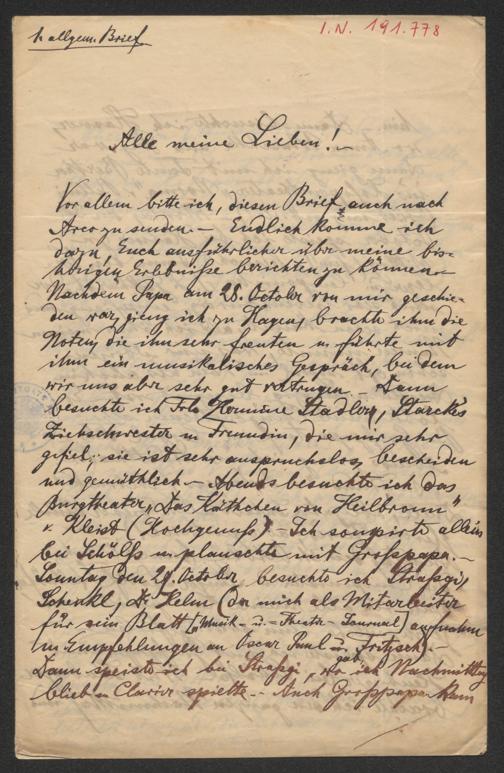 1. allgem. Brief
I.N. 191.778
Alle meine Lieben! –
Vor allem bitte ich, diesen Brief auch nach
Arco zu senden. – Endlich komme ich
dazu, Euch ausführlicher über meine bis-
herigen Erlebnisse berichten zu können. –
Nachdem Papa am 28. October von mir geschie-
den war, gieng ich zu Hagen, brachte ihm die
Noten, die ihn sehr freuten u. führte mit
ihm ein musikalisches Gespräch, bei dem
wir uns aber sehr gut vertrugen. – Dann
besuchte ich Frln Hermine Stadler, Starckes
Ziehschwester u. Freundin, die mir sehr
gefiel; sie ist sehr anspruchslos, bescheiden
und gemüthlich. – Abends besuchte ich das
Burgtheater „Das Käthchen von Heilbronn"
v. Kleist (Hochgenuss). – Ich soupirte allein
bei Schölfs u. plauschte mit Grosspapa. –
Sonntag den 29. October besuchte ich Strassgi,
Schenkl, Dr. Helm (der mich als Mitarbeiter
für sein Blatt („Musik- u. Theater-Journal)
um Empfehlungen an Oscar Paul u. Fritzsch gab). –
Dann speiste ich bei Strassgi, wo ich Nachmittag
blieb u. Clavier spielte. – Auch Grosspapa kam